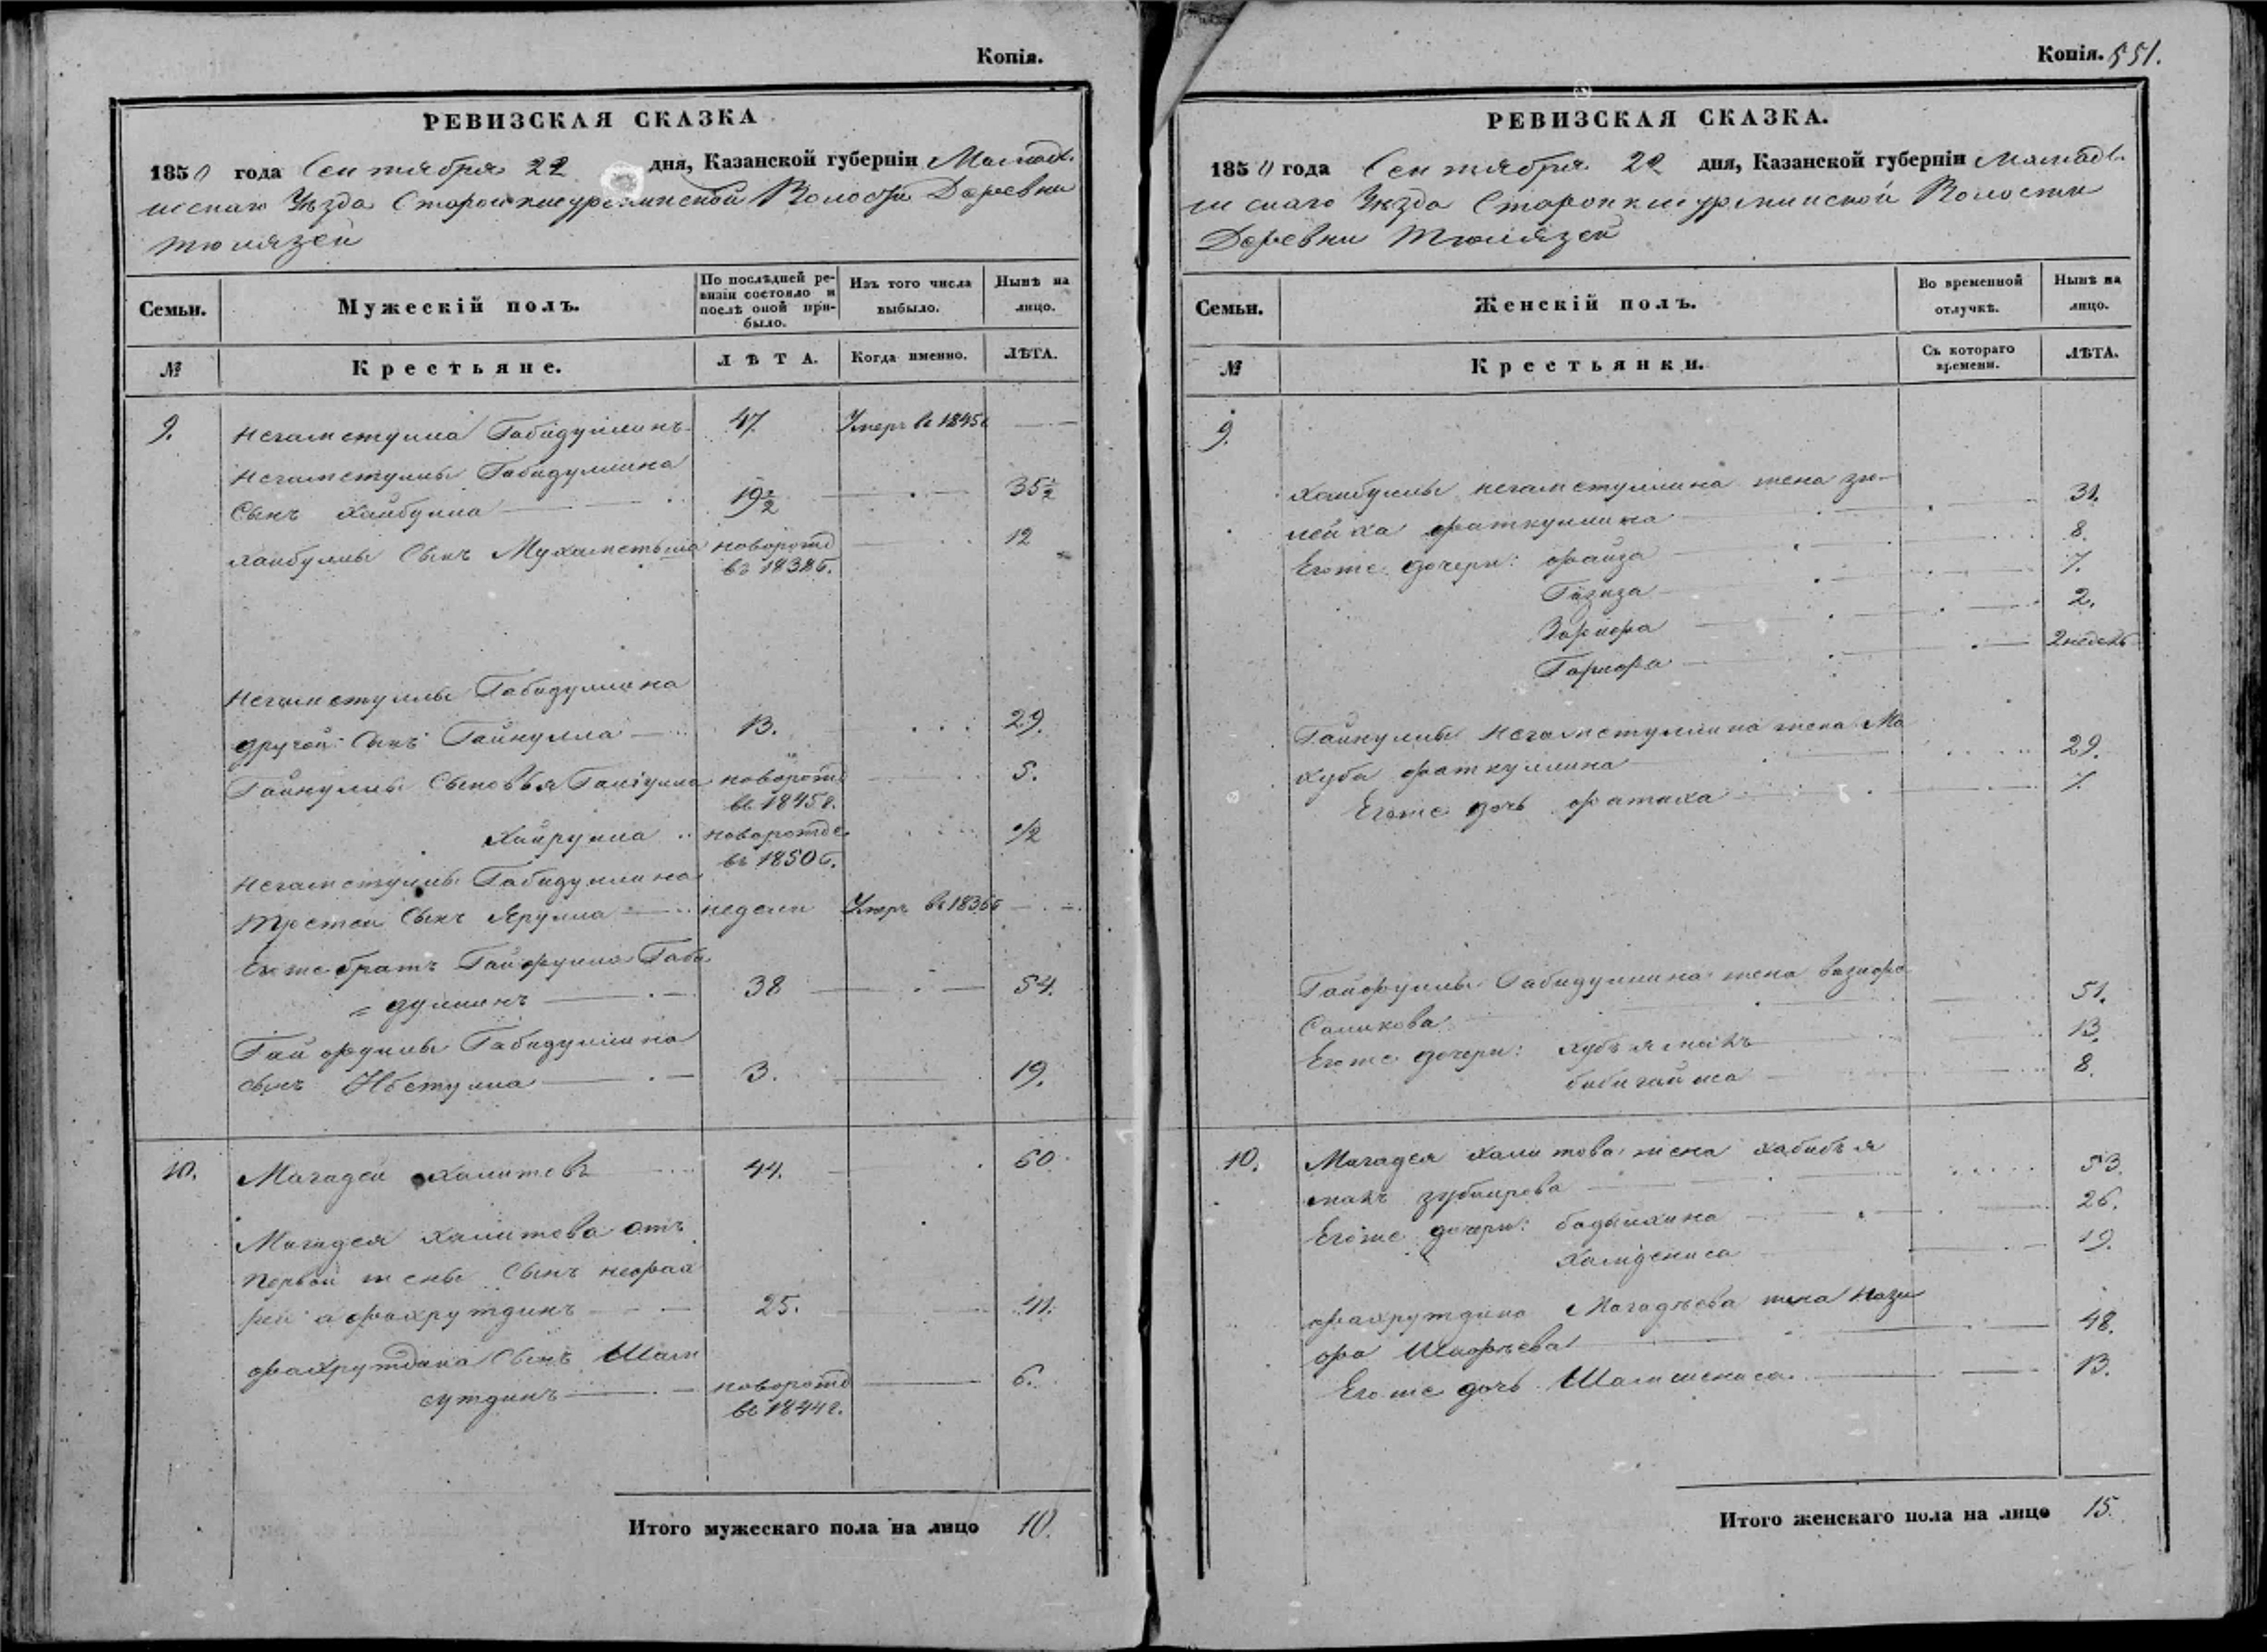 Копія.
РЕВИЗСКАЯ СКАЗКА
1850 года Сентября 22 дня, Казанской губерніи Мамады
шскаго Уѣзда Старокишурминской Волости Деревни
Тюлязей
Семьи.
Мужескій полъ.
По послѣдней ре-
визіи состояло и
послѣ оной при-
было.
Изъ того числа
выбыло.
Нынѣ на
лицо.
№
Крестьяне.
ЛѢТА.
Когда именно.
ЛѢТА.
9. Негаметулла Габидуллинъ 47 Умеръ въ 1845г
Негаметуллы Габидуллина
Сынъ Хайбулла 19 1/2 35 1/2
Хайбуллы Сынъ Мухаметьша новорожд 12
въ 1838г.
Негаметуллы Габидуллина
другой Сынъ Гайнулла 13. 29.
Гайнуллы Сыновья новорожд 5.
въ 1845г.
Хайрулла новорожде 1/2
въ 1850г.
Негаметуллы Габидуллина
третей Сынъ Ярулла недели Умеръ въ 1836г
Егоже братъ Гайфулла Габи
дуллинъ 38 54.
Гайфуллы Габидуллина
сынъ 3. 19.
10. Магадей Халитовъ 44. 60.
Магадея Халитова отъ
первой жены Сынъ
фахрутдинъ 25. 41.
фахрутдина Сынъ Шам
сутдинъ новорожд 6.
въ 1844г.
Итого мужескаго пола на лицо 10.
Копія. 551.
РЕВИЗСКАЯ СКАЗКА.
1850 года Сентября 22 дня, Казанской губерніи Мамады
шскаго Уѣзда Старокишурминской Волости
Деревни Тюлязей
Семьи.
Женскій полъ.
Во временной
отлучкѣ.
Нынѣ на
лицо.
№
Крестьянки.
Съ котораго
времени.
ЛѢТА.
9.
Хайбуллы Негаметуллина жена Зю-
лейха фаткуллина 31.
Егоже дочери: файза 8.
Газиза 7.
Зарифа 2.
Гарифа 2 недель
Гайнуллы Негаметуллина жена Ма
хуба фаткуллина 29.
Егоже дочь фатиха 7.
Гайфуллы Габидуллина жена Вазифа
Саликова 51.
Егоже дочери: 13.
8.
10. Магадея Халитова жена Хабибъя
малъ Зубаирова 53.
Егоже дочери: 26.
Хамидениса 19.
фахрутдина Магадѣева жена Нази
фа 48.
Егоже дочь Шамшениса 13.
Итого женскаго пола на лицо 15.